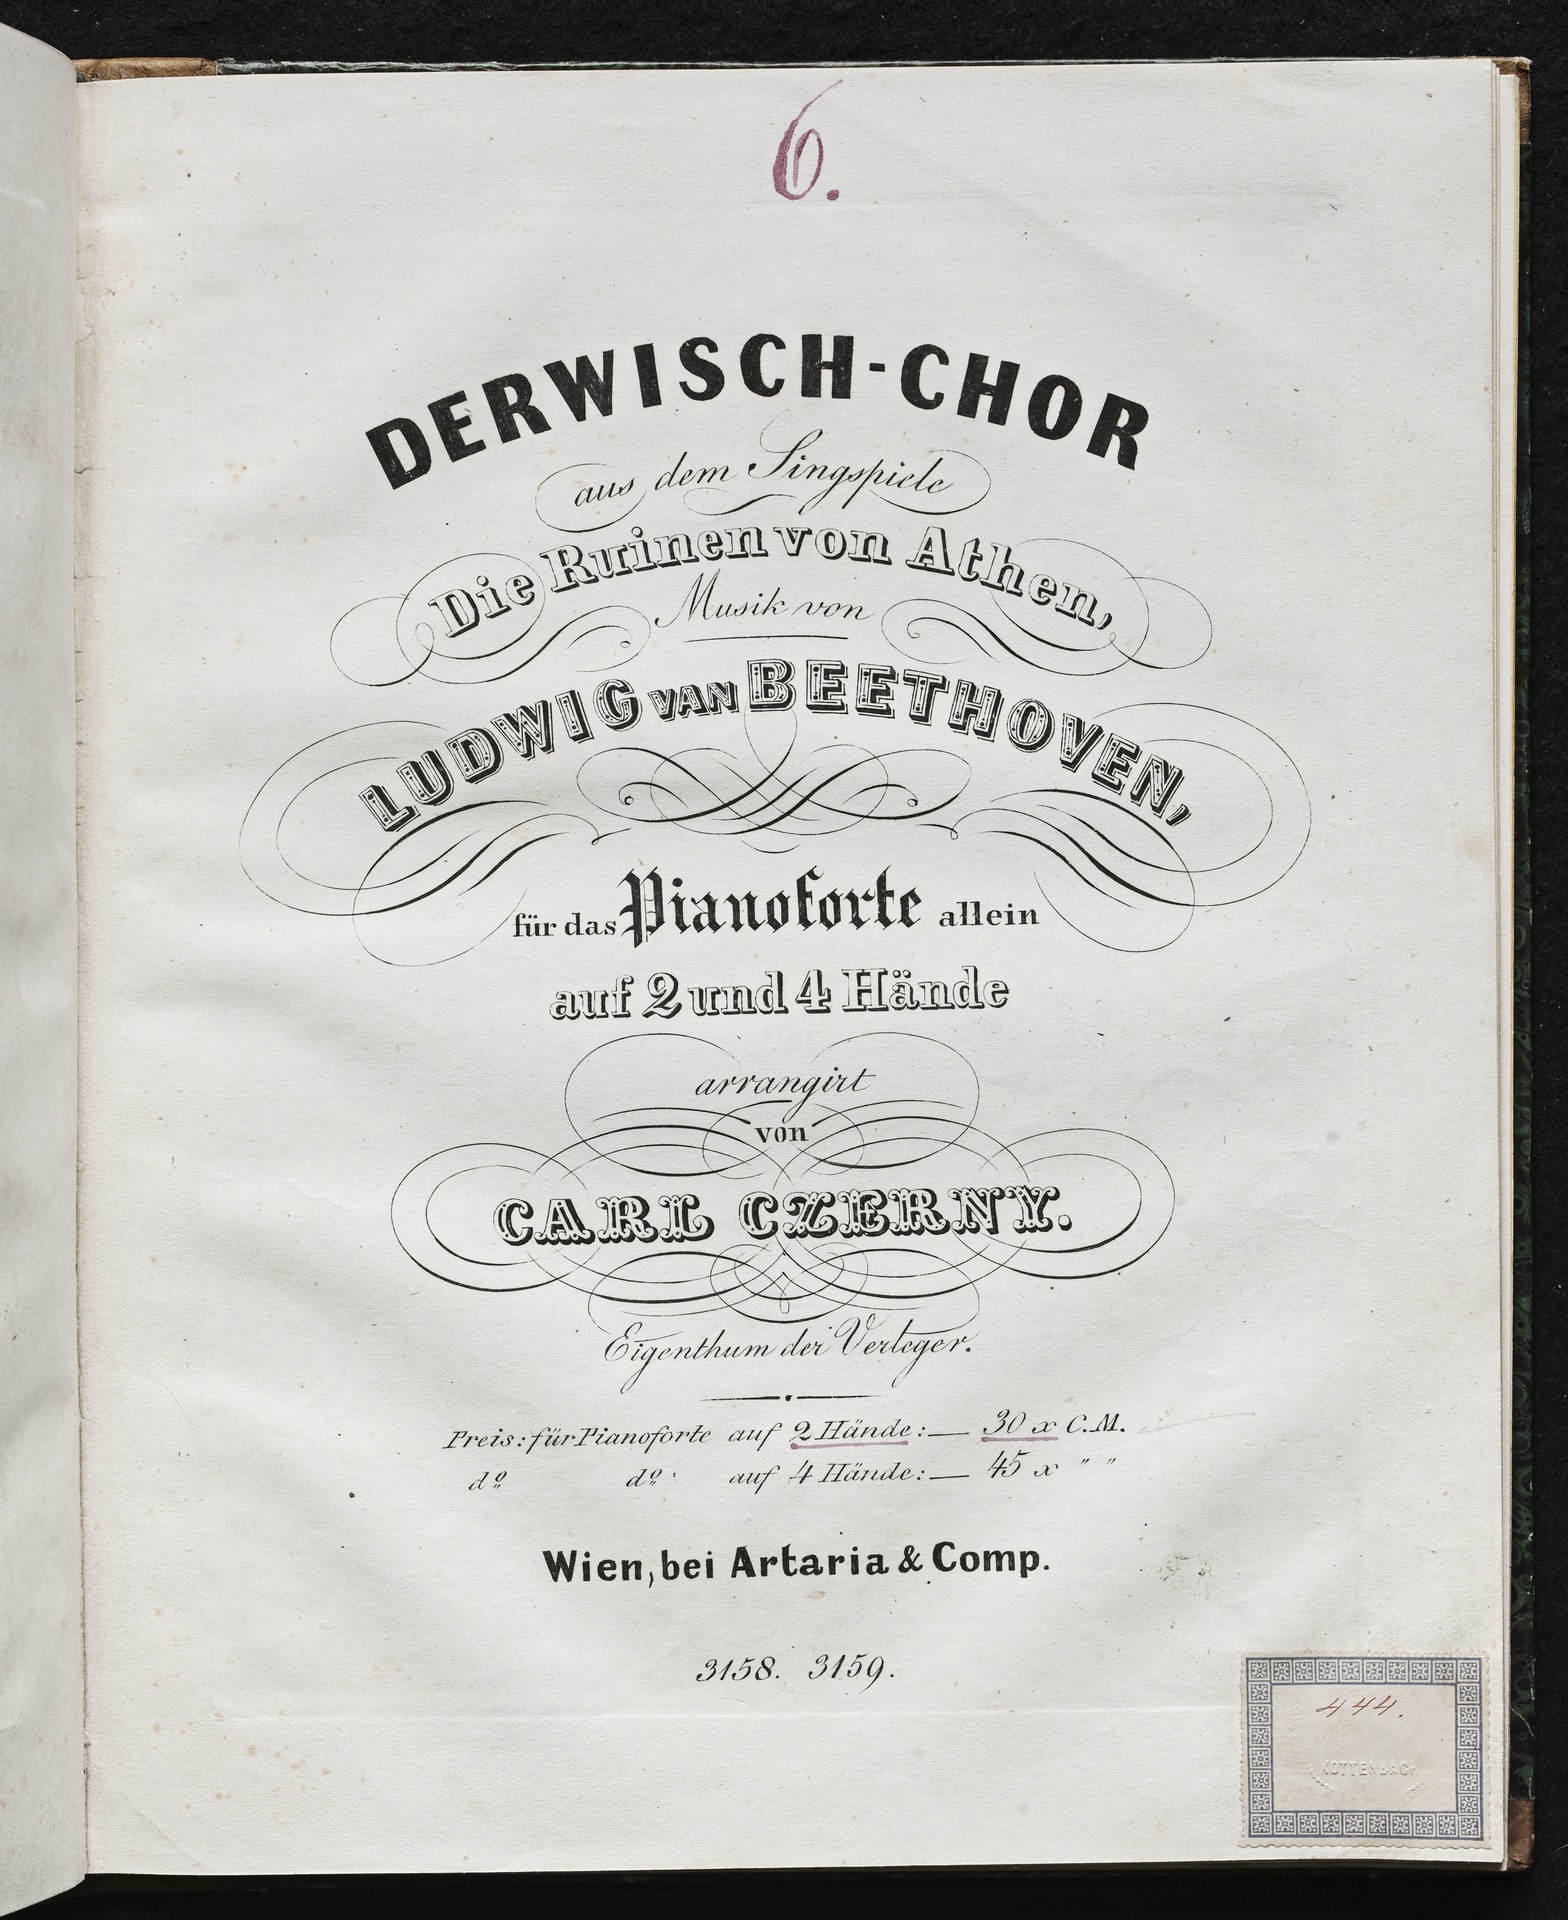 6.
DERWISCH-CHOR
aus dem Singspiele
Die Ruinen von Athen,
Musik von
LUDWIG VAN BEETHOVEN,
für das Pianoforte allein
auf 2 und 4 Hände
arrangirt
von
CARL CZERNY.
Eigenthum der Verleger.
Preis: für Pianoforte auf 2 Hände: — 30 x C.M.
do do auf 4 Hände: — 45 x " "
Wien, bei Artaria & Comp.
3158. 3159.
444.
KOTTENBACH